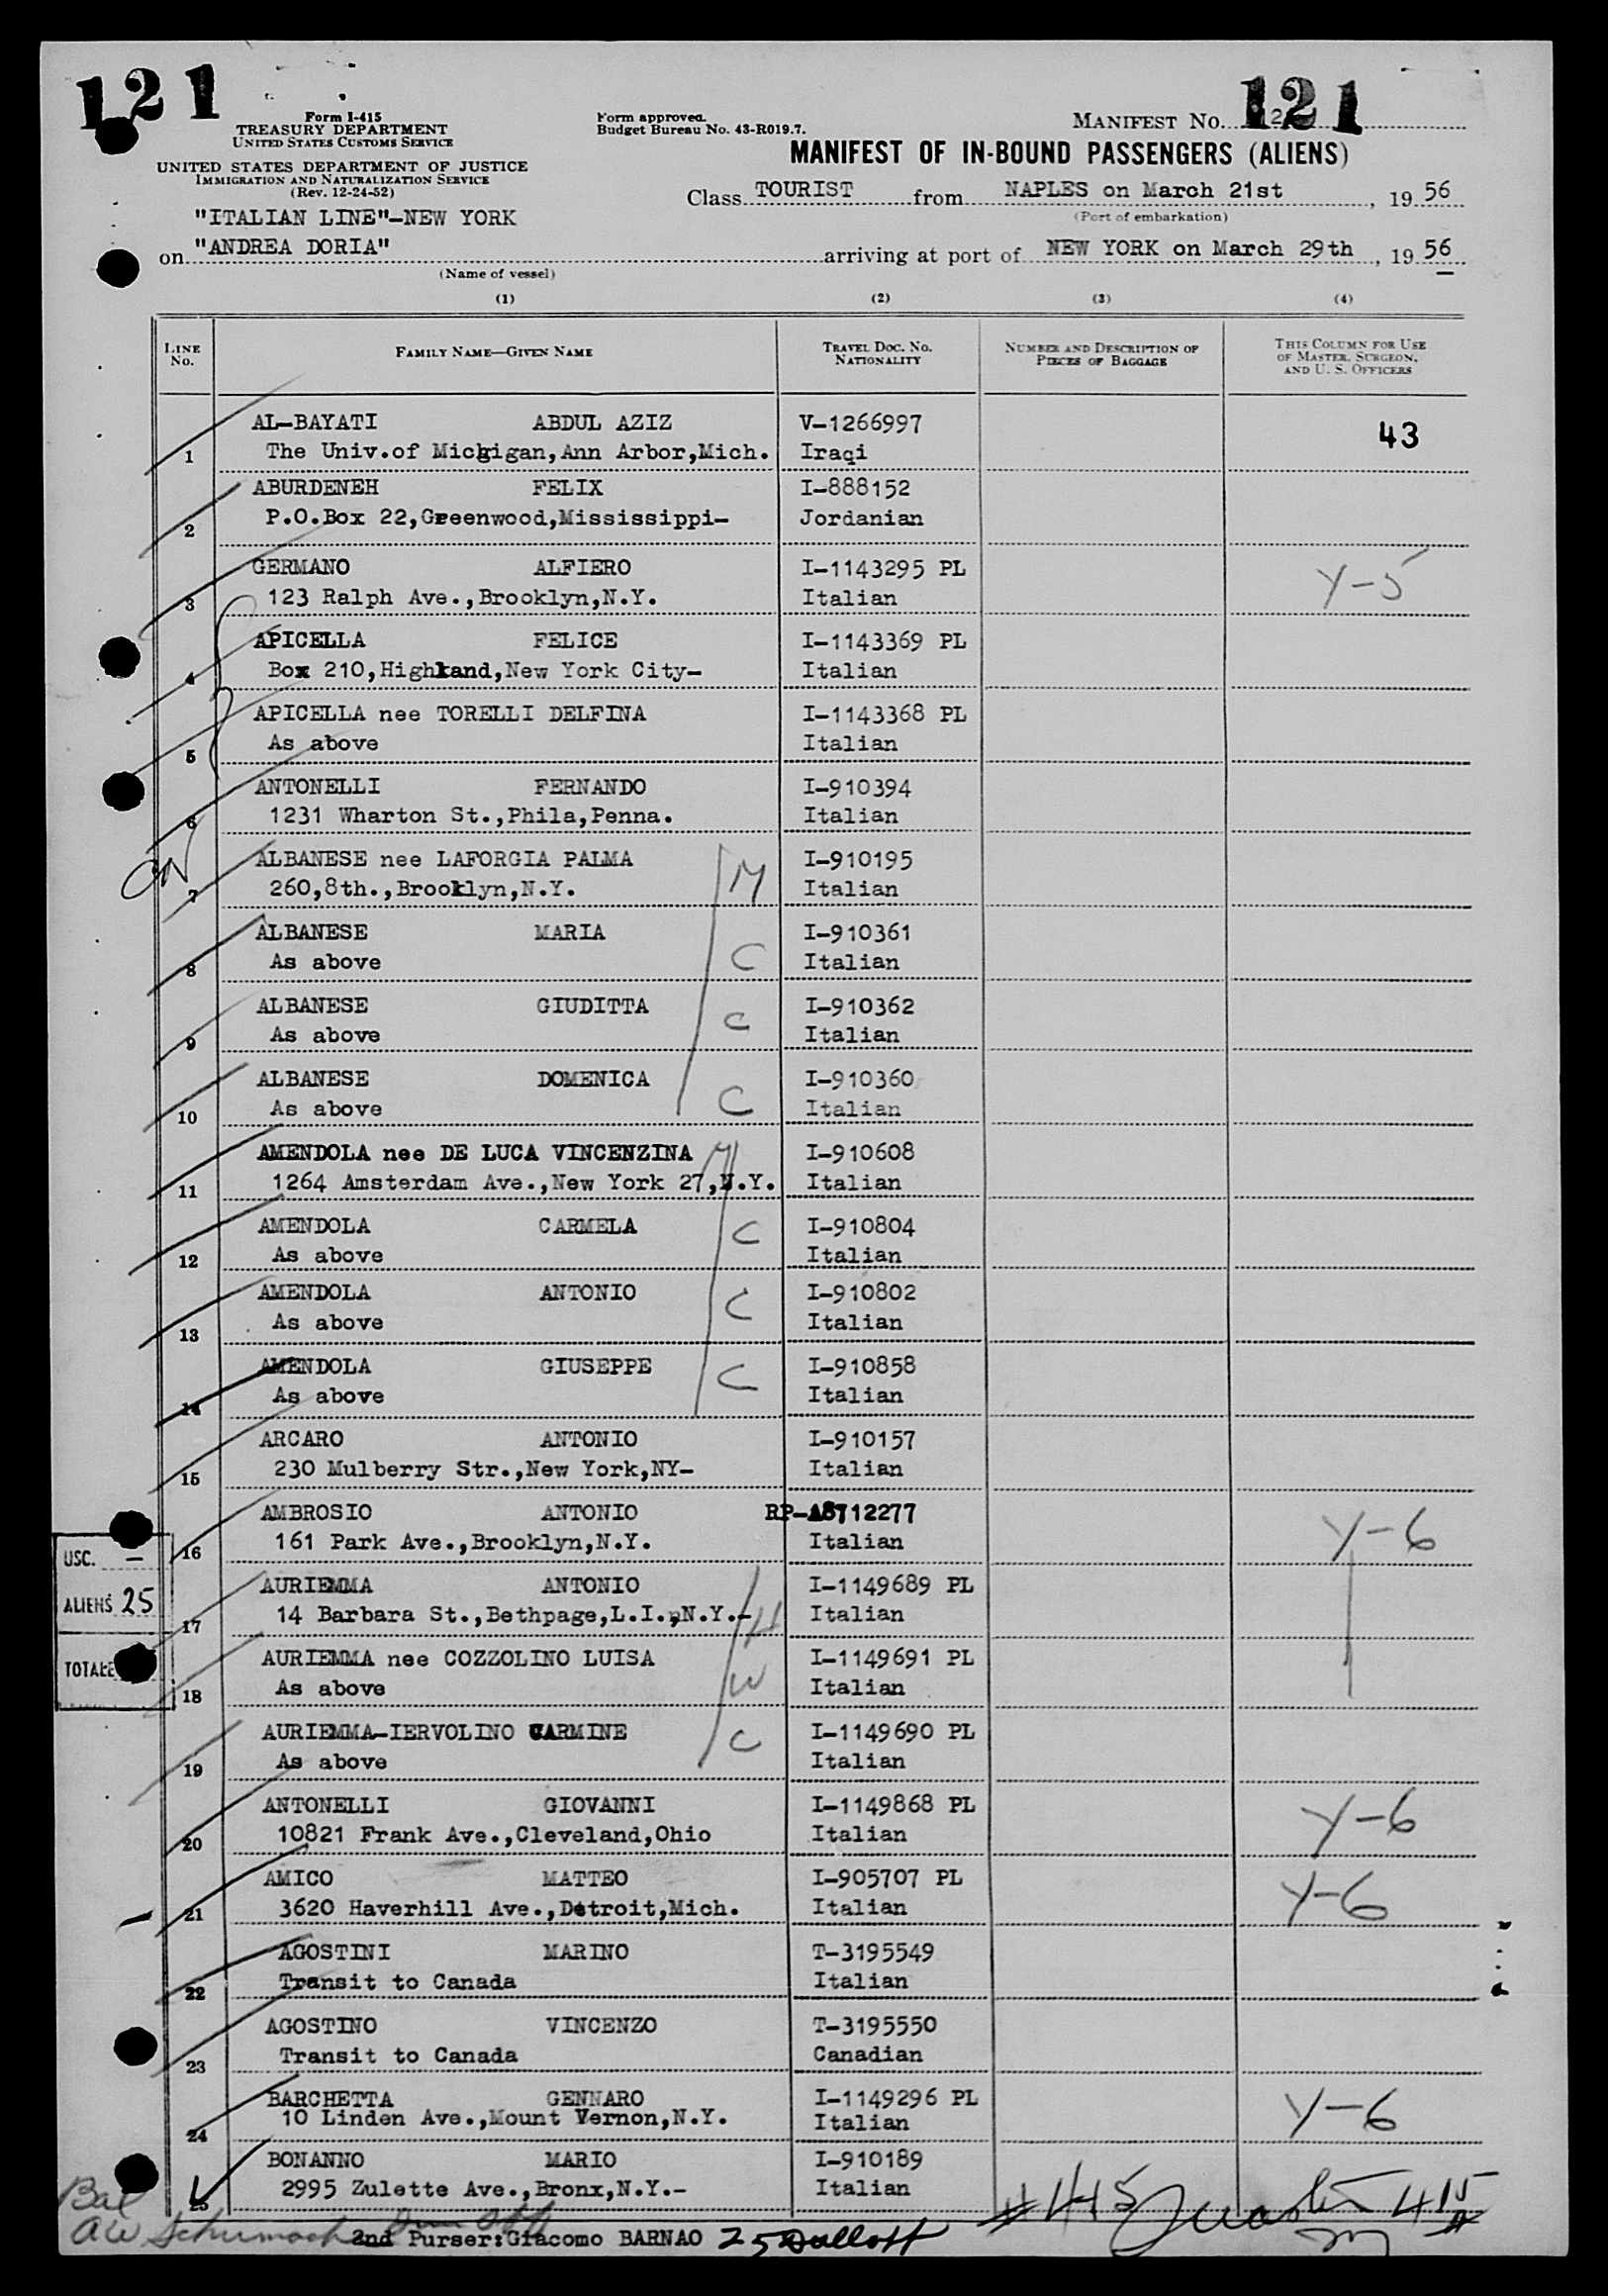 121
Form I-415
TREASURY DEPARTMENT
UNITED STATES CUSTOMS SERVICE
UNITED STATES DEPARTMENT OF JUSTICE
IMMIGRATION AND NATURALIZATION SERVICE
(Rev. 12-24-52)
Form approved.
Budget Bureau No. 43-R019.7.
MANIFEST NO. 121
MANIFEST OF IN-BOUND PASSENGERS (ALIENS)
Class TOURIST from NAPLES on March 21st, 19 56
(Port of embarkation)
"ITALIAN LINE"-NEW YORK
on "ANDREA DORIA" arriving at port of NEW YORK on March 29th, 19 56
(Name of vessel)
(1) (2) (3) (4)
LINE NO. FAMILY NAME—GIVEN NAME TRAVEL DOC. NO. NATIONALITY NUMBER AND DESCRIPTION OF PIECES OF BAGGAGE THIS COLUMN FOR USE OF MASTER, SURGEON, AND U. S. OFFICERS
AL-BAYATI ABDUL AZIZ V-1266997 43
1 The Univ.of Michigan,Ann Arbor,Mich. Iraqi
ABURDENEH FELIX I-888152
2 P.O.Box 22,Greenwood,Mississippi- Jordanian
GERMANO ALFIERO I-1143295 PL Y-5
3 123 Ralph Ave.,Brooklyn,N.Y. Italian
APICELLA FELICE I-1143369 PL
4 Box 210,Highland,New York City- Italian
APICELLA nee TORELLI DELFINA I-1143368 PL
5 As above Italian
ANTONELLI FERNANDO I-910394
6 1231 Wharton St.,Phila,Penna. Italian
ALBANESE nee LAFORGIA PALMA M I-910195
7 260,8th.,Brooklyn,N.Y. Italian
ALBANESE MARIA I-910361
8 As above C Italian
ALBANESE GIUDITTA C I-910362
9 As above Italian
ALBANESE DOMENICA I-910360
10 As above C Italian
AMENDOLA nee DE LUCA VINCENZINA M I-910608
11 1264 Amsterdam Ave.,New York 27,N.Y. Italian
AMENDOLA CARMELA C I-910804
12 As above Italian
AMENDOLA ANTONIO C I-910802
13 As above Italian
AMENDOLA GIUSEPPE C I-910858
14 As above Italian
ARCARO ANTONIO I-910157
15 230 Mulberry Str.,New York,NY- Italian
AMBROSIO ANTONIO Y-6
16 161 Park Ave.,Brooklyn,N.Y. Italian
AURIEMMA ANTONIO I-1149689 PL
17 14 Barbara St.,Bethpage,L.I.,N.Y.- H Italian
AURIEMMA nee COZZOLINO LUISA I-1149691 PL
18 As above W Italian
AURIEMMA-IERVOLINO CARMINE C I-1149690 PL
19 As above Italian
ANTONELLI GIOVANNI I-1149868 PL Y-6
20 10821 Frank Ave.,Cleveland,Ohio Italian
AMICO MATTEO I-905707 PL Y-6
21 3620 Haverhill Ave.,Detroit,Mich. Italian
AGOSTINI MARINO T-3195549
22 Transit to Canada Italian
AGOSTINO VINCENZO T-3195550
23 Transit to Canada Canadian
BARCHETTA GENNARO I-1149296 PL Y-6
24 10 Linden Ave.,Mount Vernon,N.Y. Italian
BONANNO MARIO I-910189
25 2995 Zulette Ave.,Bronx,N.Y.- Italian
USC. —
ALIENS 25
TOTALE
Bal
2nd Purser:Giacomo BARNAO 25